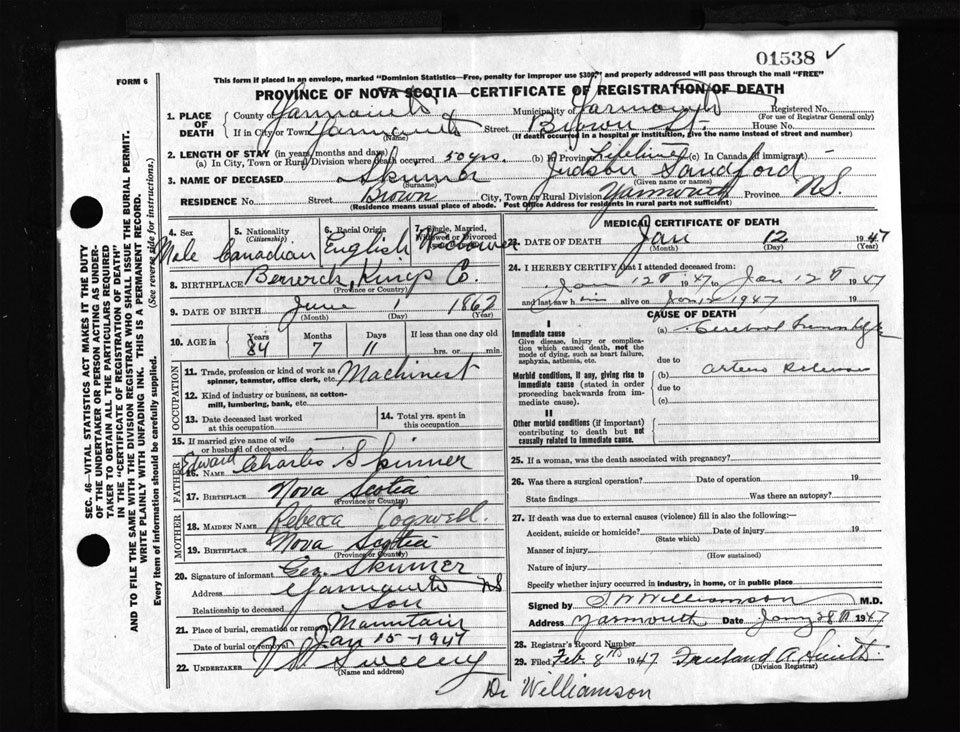 01538 ✓
FORM 6
This form if placed in an envelope, marked "Dominion Statistics—Free, penalty for improper use $300," and properly addressed will pass through the mail "FREE"
PROVINCE OF NOVA SCOTIA—CERTIFICATE OF REGISTRATION OF DEATH
1. PLACE OF DEATH
County of Yarmouth Municipality of Yarmouth Registered No.
(For use of Registrar General only)
If in City or Town Yarmouth Street Brown St. House No.
(Name) (If death occurred in a hospital or institution, give the name instead of street and number)
2. LENGTH OF STAY (in years, months and days)
(a) In City, Town or Rural Division where death occurred 50 yrs. (b) In Province Lifetime (c) In Canada (if immigrant)
3. NAME OF DECEASED Skinner Judson Sandford
(Surname) (Given name or names)
RESIDENCE No. Street Brown City, Town or Rural Division Yarmouth Province N.S.
(Residence means usual place of abode. Post Office Address for residents in rural parts not sufficient)
SEC. 46—VITAL STATISTICS ACT MAKES IT THE DUTY
OF THE UNDERTAKER OR PERSON ACTING AS UNDER-
TAKER TO OBTAIN ALL THE PARTICULARS REQUIRED
IN THE "CERTIFICATE OF REGISTRATION OF DEATH"
AND TO FILE THE SAME WITH THE DIVISION REGISTRAR WHO SHALL ISSUE THE BURIAL PERMIT.
WRITE PLAINLY WITH UNFADING INK. THIS IS A PERMANENT RECORD.
Every item of Information should be carefully supplied. (See reverse side for instructions.)
4. Sex
Male
5. Nationality
(Citizenship)
Canadian
6. Racial Origin
English
7. Single, Married,
Widowed or Divorced
Widower
8. BIRTHPLACE Berwick, Kings Co.
(Province or Country)
9. DATE OF BIRTH June 1 1862
(Month) (Day) (Year)
10. AGE in
Years Months Days If less than one day old
84 7 11 hrs. or min.
OCCUPATION
11. Trade, profession or kind of work as Machinest
spinner, teamster, office clerk, etc.
12. Kind of industry or business, as cotton-
mill, lumbering, bank, etc.
13. Date deceased last worked
at this occupation
14. Total yrs. spent in
this occupation
15. If married give name of wife
or husband of deceased
FATHER
16. Name Edward Charles Skinner
17. BIRTHPLACE Nova Scotia
(Province or Country)
MOTHER
18. MAIDEN NAME Rebecca Cogswell.
19. BIRTHPLACE Nova Scotia
(Province or Country)
20. Signature of informant Geo. Skinner
Address Yarmouth NS
Relationship to deceased Son
21. Place of burial, cremation or removal Mountain
Date of burial or removal Jan 15-1947
22. UNDERTAKER Sweeny
(Name and address)
MEDICAL CERTIFICATE OF DEATH
23. DATE OF DEATH Jan 12 1947
(Month) (Day) (Year)
24. I HEREBY CERTIFY that I attended deceased from:
Jan 12th 1947 to Jan 12th 1947
and last saw him alive on Jan 12 1947 19
CAUSE OF DEATH
I
Immediate cause
Give disease, injury or compli-
cation which caused death, not the
mode of dying, such as heart failure,
asphyxia, asthenia, etc.
(a) Cerebral
due to
Morbid conditions, if any, giving rise to
immediate cause (stated in order
proceeding backwards from im-
mediate cause).
(b) Arterio
due to
(c)
II
Other morbid conditions (if important)
contributing to death but not
causally related to immediate cause.
25. If a woman, was the death associated with pregnancy?
26. Was there a surgical operation? Date of operation 19
State findings Was there an autopsy?
27. If death was due to external causes (violence) fill in also the following:—
Accident, suicide or homicide? Date of injury 19
(State which)
Manner of injury
(How sustained)
Nature of injury
Specify whether injury occurred in industry, in home, or in public place
Signed by S W Williamson M.D.
Address Yarmouth Date Jany 28th 1947
28. Registrar's Record Number
29. Filed Feb. 8th 1947 Freeland A. Smith
(Division Registrar)
Dr Williamson